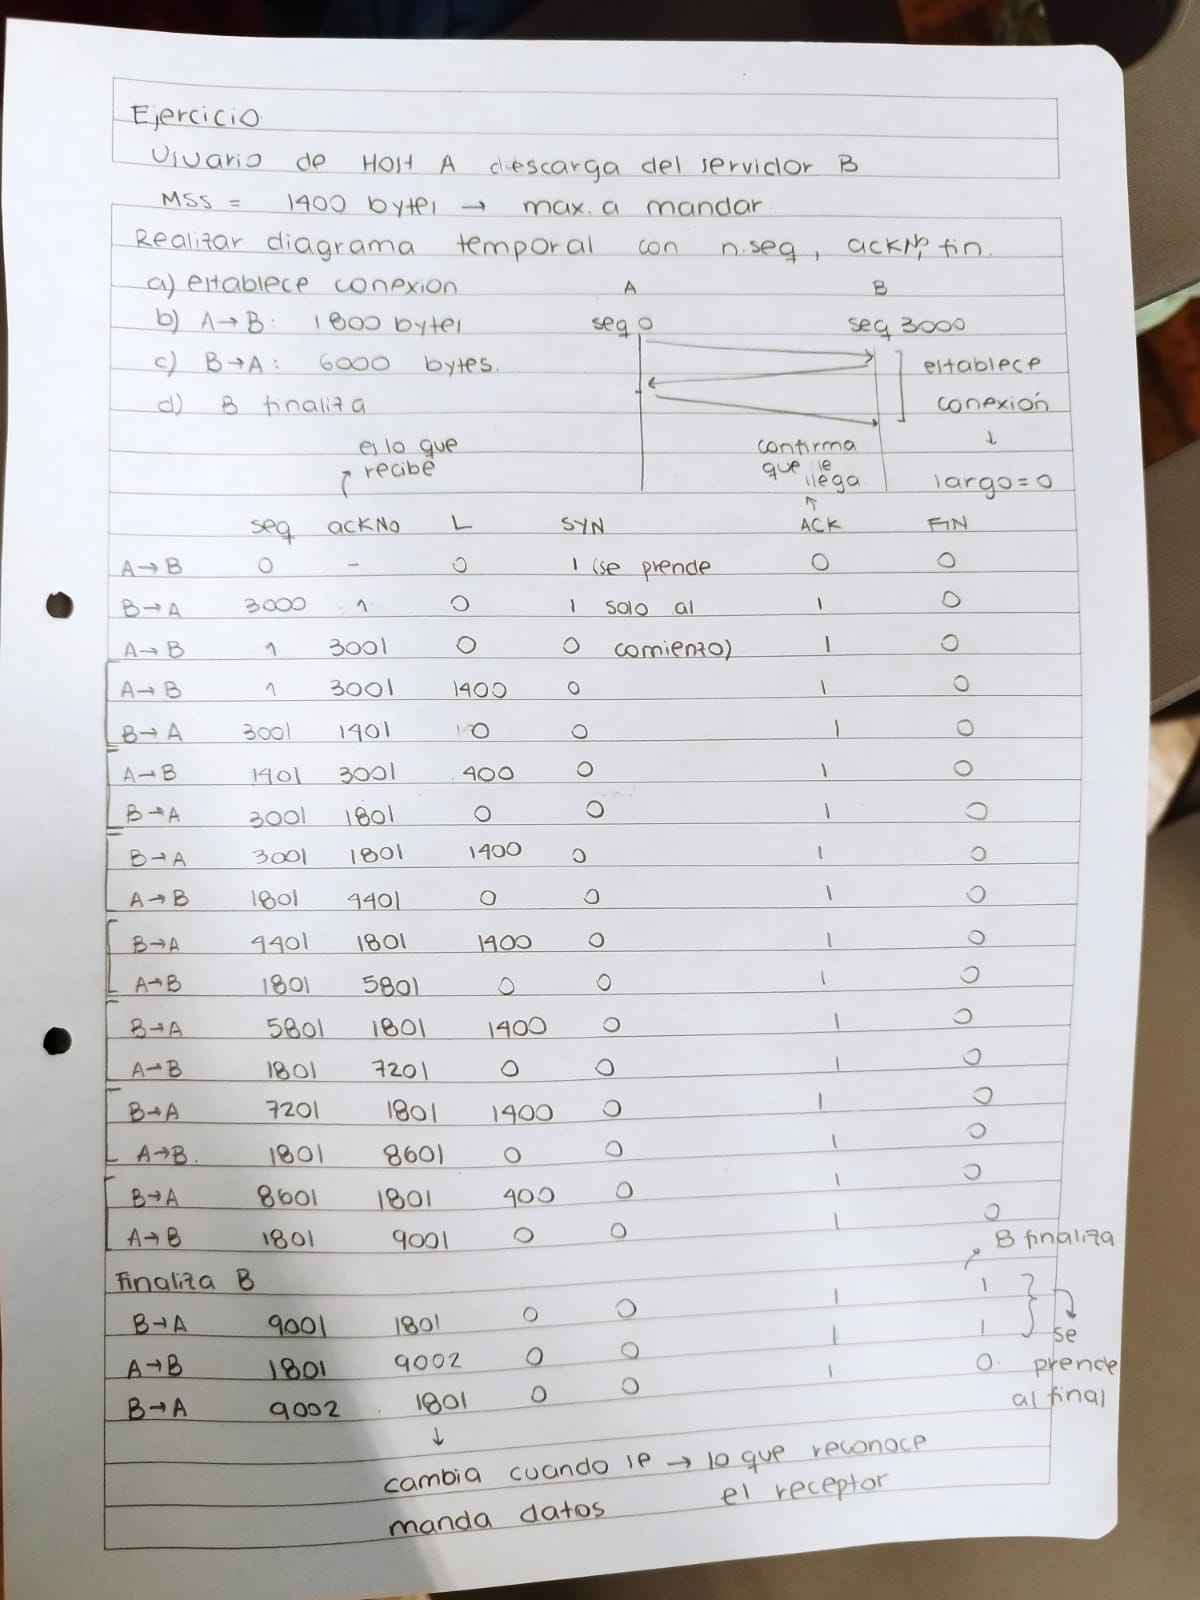 Ejercicio
Usuario de Host A descarga del servidor B
MSS = 1400 bytes → max. a mandar
Realizar diagrama temporal con n.seq, ackNo, fin.
a) establece conexion A B
b) A→B: 1800 bytes seq 0 seq 3000
c) B→A: 6000 bytes. establece
d) B finaliza conexión
es lo que confirma ↓
recibe que le llega largo=0
seq ackNo L SYN ACK FIN
A→B 0 - 0 1 (se prende 0 0
B→A 3000 1 0 1 solo al 1 0
A→B 1 3001 0 0 comienzo) 1 0
A→B 1 3001 1400 0 1 0
B→A 3001 1401 0 0 1 0
A→B 1401 3001 400 0 1 0
B→A 3001 1801 0 0 1 0
B→A 3001 1801 1400 0 1 0
A→B 1801 4401 0 0 1 0
B→A 4401 1801 1400 0 1 0
A→B 1801 5801 0 0 1 0
B→A 5801 1801 1400 0 1 0
A→B 1801 7201 0 0 1 0
B→A 7201 1801 1400 0 1 0
A→B. 1801 8601 0 0 1 0
B→A 8601 1801 400 0 1 0
A→B 1801 9001 0 0 1 0
Finaliza B B finaliza
B→A 9001 1801 0 0 1 1
A→B 1801 9002 0 0 1 1 se
B→A 9002 1801 0 0 1 0. prende
al final
↓
cambia cuando le → lo que reconoce
manda datos el receptor